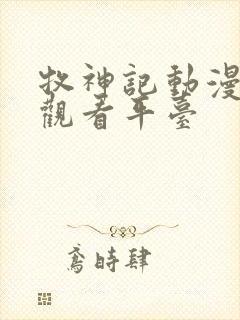 牧神記動漫
觀看平臺
鳶時肆